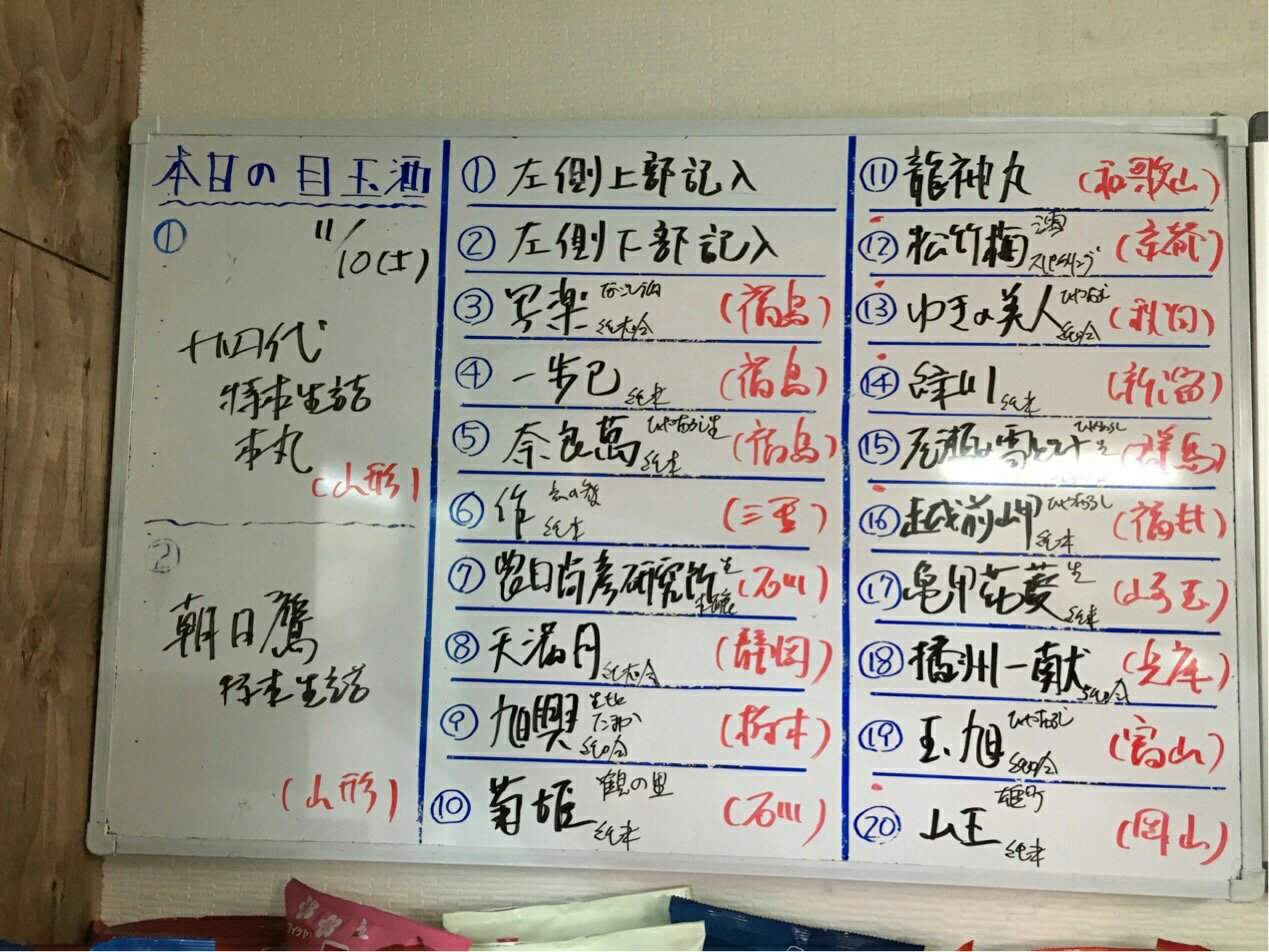 本日の目玉酒
①
11/10(土)
十四代
特本生詰
本丸
(山形)
②
朝日鷹
特本生詰
(山形)
① 左側上部記入
② 左側下部記入
③ 写楽 なごし酒 純吟 (福島)
④ 一歩己 純米 (福島)
⑤ 奈良萬 ひやおろし生 純米 (福島)
⑥ 作 玄の智 純米 (三重)
⑦ 農口尚彦研究所 生 (石川)
⑧ 天満月 純大吟 (静岡)
⑨ 旭興 生もと たまか 純吟 (栃木)
⑩ 菊姫 鶴の里 純米 (石川)
⑪ 龍神丸 (和歌山)
⑫ 松竹梅 澪 スパークリング (京都)
⑬ ゆきの美人 ひやおろし 純吟 (秋田)
⑭ 緑川 純米 (新潟)
⑮ 尾瀬の雪どけ ひやおろし (群馬)
⑯ 越前岬 ひやおろし 純米 (福井)
⑰ 亀甲花菱 生 純米 (埼玉)
⑱ 播州一献 純吟 (兵庫)
⑲ 玉旭 ひやおろし 純吟 (富山)
⑳ 山王 雄町 純米 (岡山)